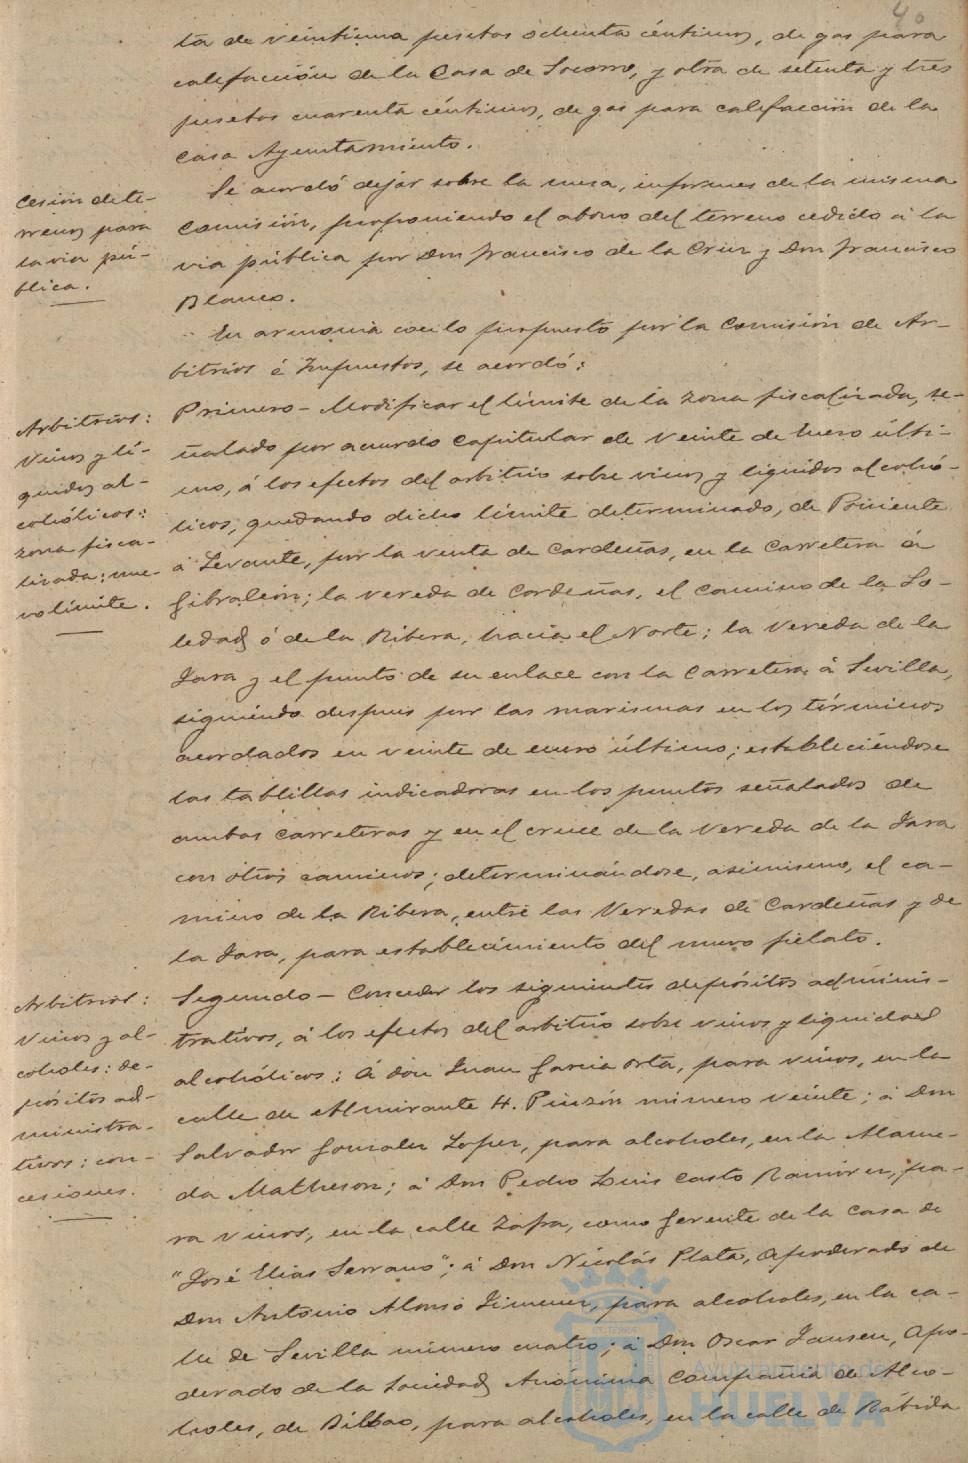 40
ta de veintiuna pesetas ochenta céntimos, de gas para
calefacción de la Casa de Socorro, y otra de setenta y tres
pesetas cuarenta céntimos, de gas para calefacción de la
Casa Ayuntamiento.
Cesión de te-
rrenos para
la via pú-
blica.
Se acordó dejar sobre la mesa, informes de la misma
Comisión, proponiendo el abono del terreno cedido á la
via pública por Don Francisco de la Cruz y Don Francisco
Blanco.
En armonia con lo propuesto por la Comisión de Ar-
bitrios é Impuestos, se acordó:
Arbitrios:
Vinos y lí-
quidos al-
cohólicos:
zona fisca-
lizada: nue-
vo límite.
Primero - Modificar el límite de la zona fiscalizada, se-
ñalado por acuerdo capitular de veinte de Enero últi-
mo, á los efectos del arbitrio sobre vinos y líquidos alcohó-
licos, quedando dicho límite determinado, de Poniente
á Levante, por la venta de Cardeñas, en la Carretera á
Gibraleón; la vereda de Cardeñas, el camino de la So-
ledad ó de la Ribera, hacia el Norte; la Vereda de la
Jara y el punto de su enlace con la Carretera á Sevilla,
siguiendo despues por las marismas en los términos
acordados en veinte de enero último; estableciéndose
las tablillas indicadoras en los puntos señalados de
ambas carreteras y en el cruce de la Vereda de la Jara
con otros caminos; determinándose, asimismo, el ca-
mino de la Ribera, entre las Veredas de Cardeñas y de
la Jara, para establecimiento del nuevo fielato.
Arbitrios:
Vinos y al-
coholes: de-
pósitos ad-
ministra-
tivos: con-
cesiones.
Segundo - Conceder los siguientes depósitos adminis-
trativos, á los efectos del arbitrio sobre vinos y liquidos
alcohólicos: á don Juan Garcia Orta, para vinos, en la
calle de Almirante H. Pinzón número veinte; á Don
Salvador Gonzalez Lopez, para alcoholes, en la Alame-
da Matheson; á Don Pedro Luis Casto Ramirez, pa-
ra vinos, en la calle Zafra, como Gerente de la Casa de
"José Elias Serrano"; á Don Nicolás Plata, Apoderado de
Don Antonio Alonso Jimenez, para alcoholes, en la ca-
lle de Sevilla número cuatro; á Don Oscar Jansen, Apo-
derado de la Sociedad Anonima Compañia de Alco-
holes, de Bilbao, para alcoholes, en la calle de Rábida
Ayuntamiento de
HUELVA